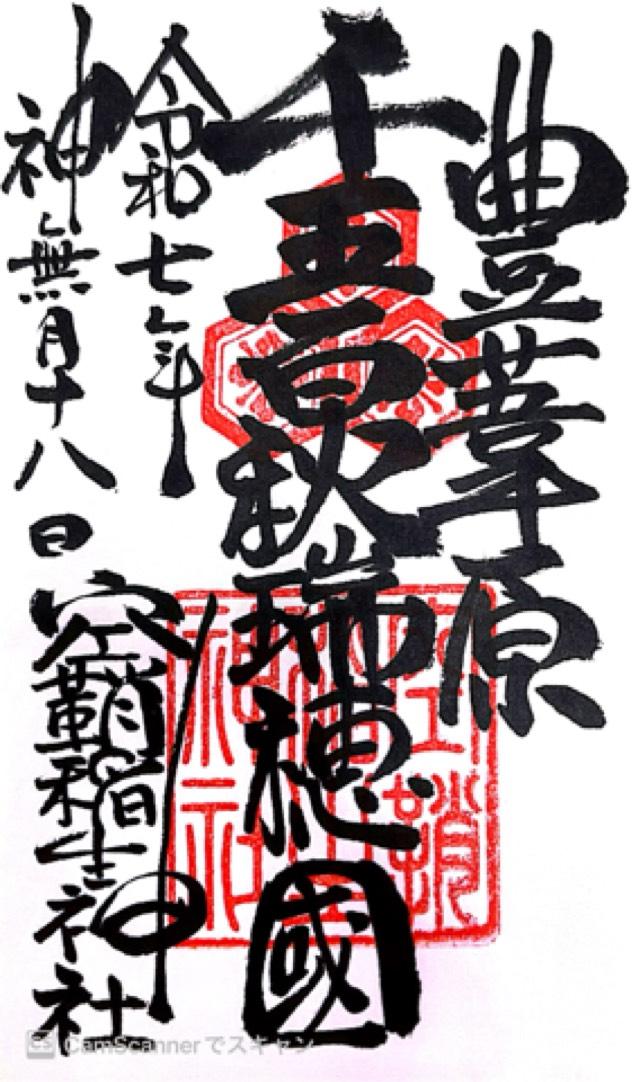 豊葦原
千五百秋瑞穂國
令和七年
神無月十八日
空鞘稲生神社
CamScannerでスキャン